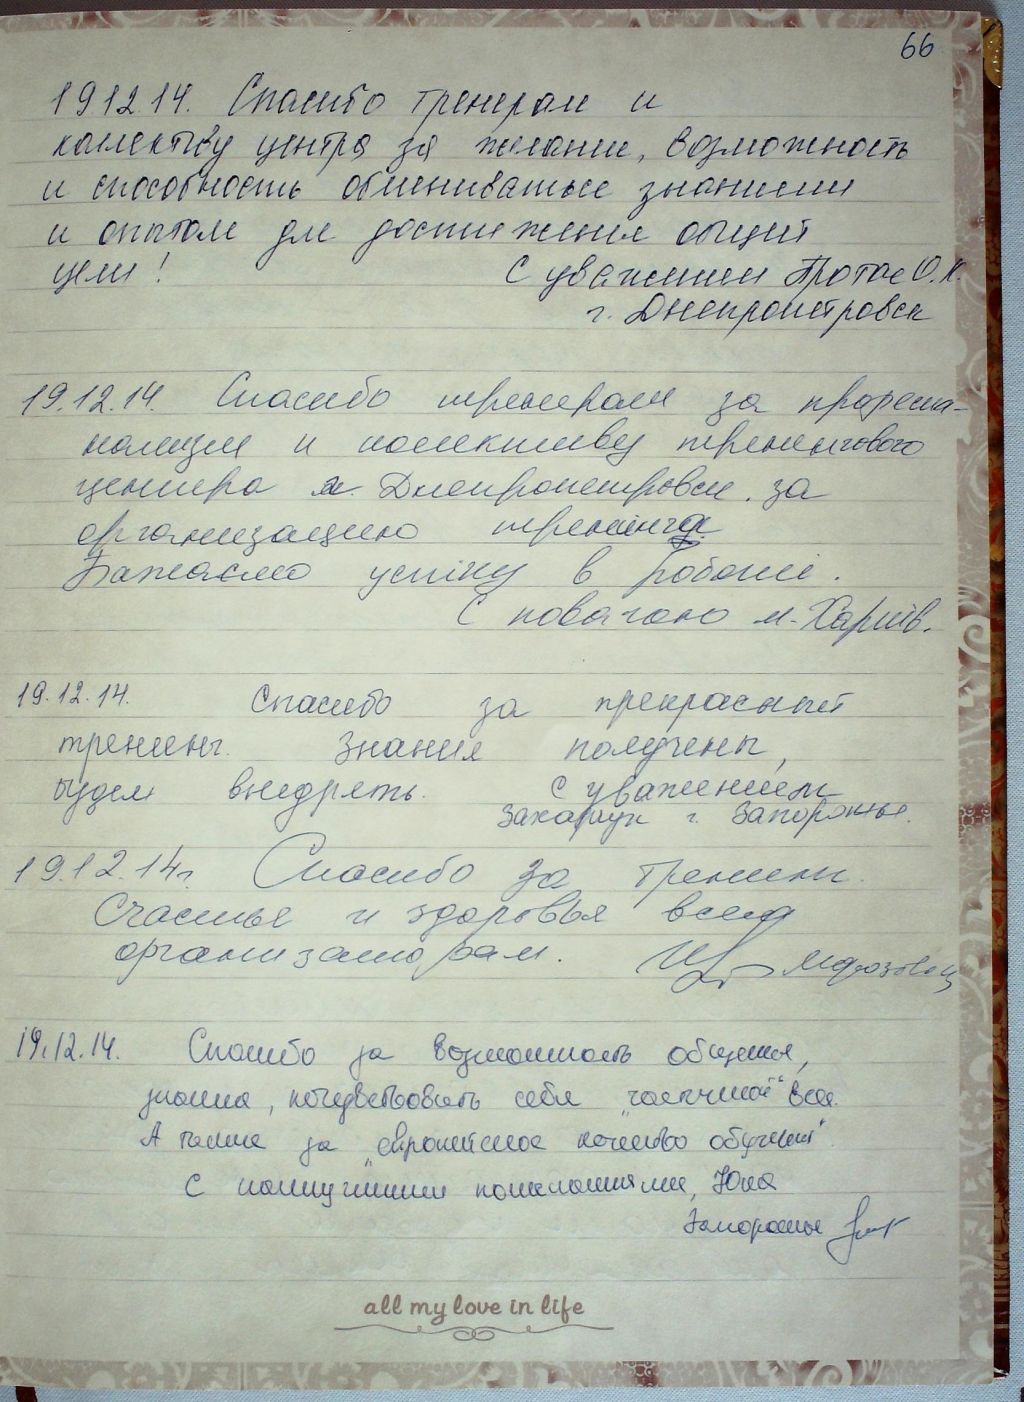 66
19.12.14. Спасибо тренерам и
коллективу центра за желание, возможность
и способность обмениваться знаниями
и опытом для достижения общей
цели!
С уважением О.К.
г. Днепропетровск
19.12.14. Спасибо тренерам за професіо-
налізм и колективу тренингового
центра м. Днепропетровск за
организацию тренінга.
Бажаємо успіху в роботі.
С повагою м. Харків.
19.12.14. Спасибо за прекрасный
тренинг. Знания получены,
будем внедрять. С уважением
Захарчук г. Запорожье.
19.12.14г. Спасибо за тренинг.
Счастья и здоровья всем
организаторам.
19.12.14. Спасибо за возможность общения,
знания, почувствовать себя "частичкой" всех.
А также за "европейское качество обучения".
С наилучшими пожеланиями, Юлия
Запорожье
all my love in life